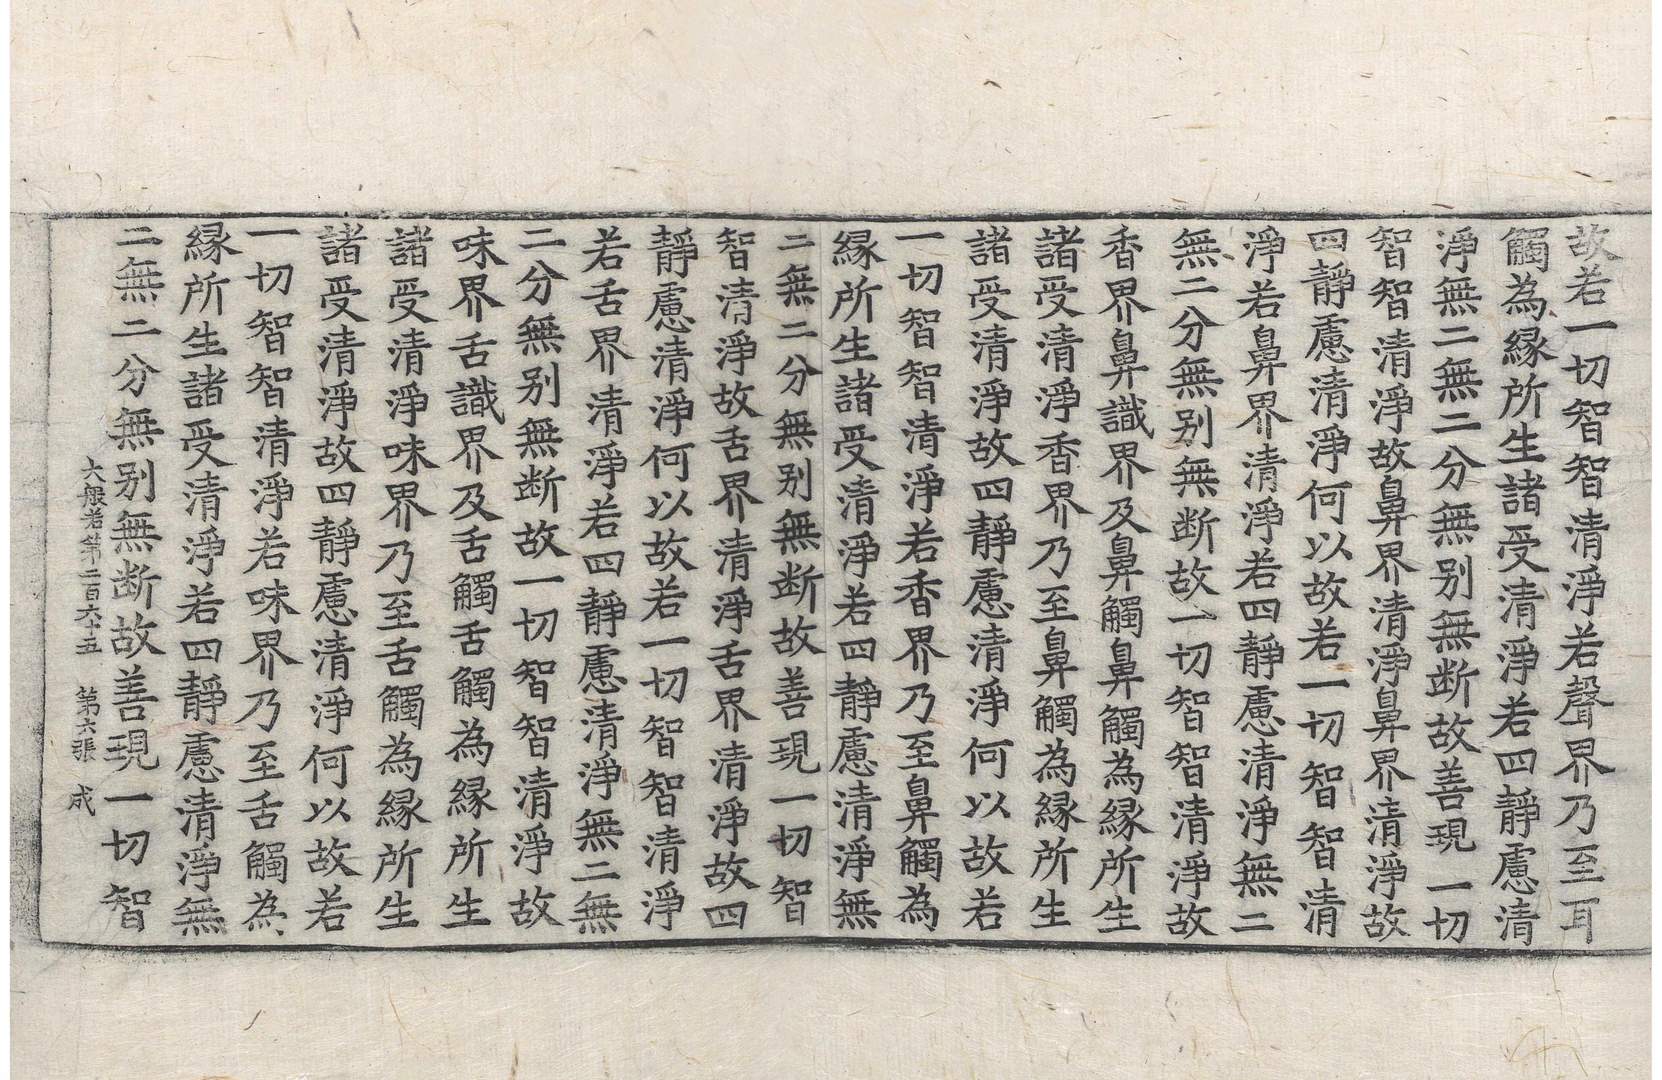 故若一切智智清淨若聲界乃至耳
觸為縁所生諸受清淨若四靜慮清
淨無二無二分無别無断故善現一切
智智清淨故鼻界清淨鼻界清淨故
四靜慮清淨何以故若一切智智清
淨若鼻界清淨若四靜慮清淨無二
無二分無别無断故一切智智清淨故
香界鼻識界及鼻觸鼻觸為縁所生
諸受清淨香界乃至鼻觸為縁所生
諸受清淨故四靜慮清淨何以故若
一切智智清淨若香界乃至鼻觸為
縁所生諸受清淨若四靜慮清淨無
二無二分無别無断故善現一切智
智清淨故舌界清淨舌界清淨故四
靜慮清淨何以故若一切智智清淨
若舌界清淨若四靜慮清淨無二無
二分無别無断故一切智智清淨故
味界舌識界及舌觸舌觸為縁所生
諸受清淨味界乃至舌觸為縁所生
諸受清淨故四靜慮清淨何以故若
一切智智清淨若味界乃至舌觸為
縁所生諸受清淨若四靜慮清淨無
二無二分無别無断故善現一切智
大般若第二百六十五 第六張 成